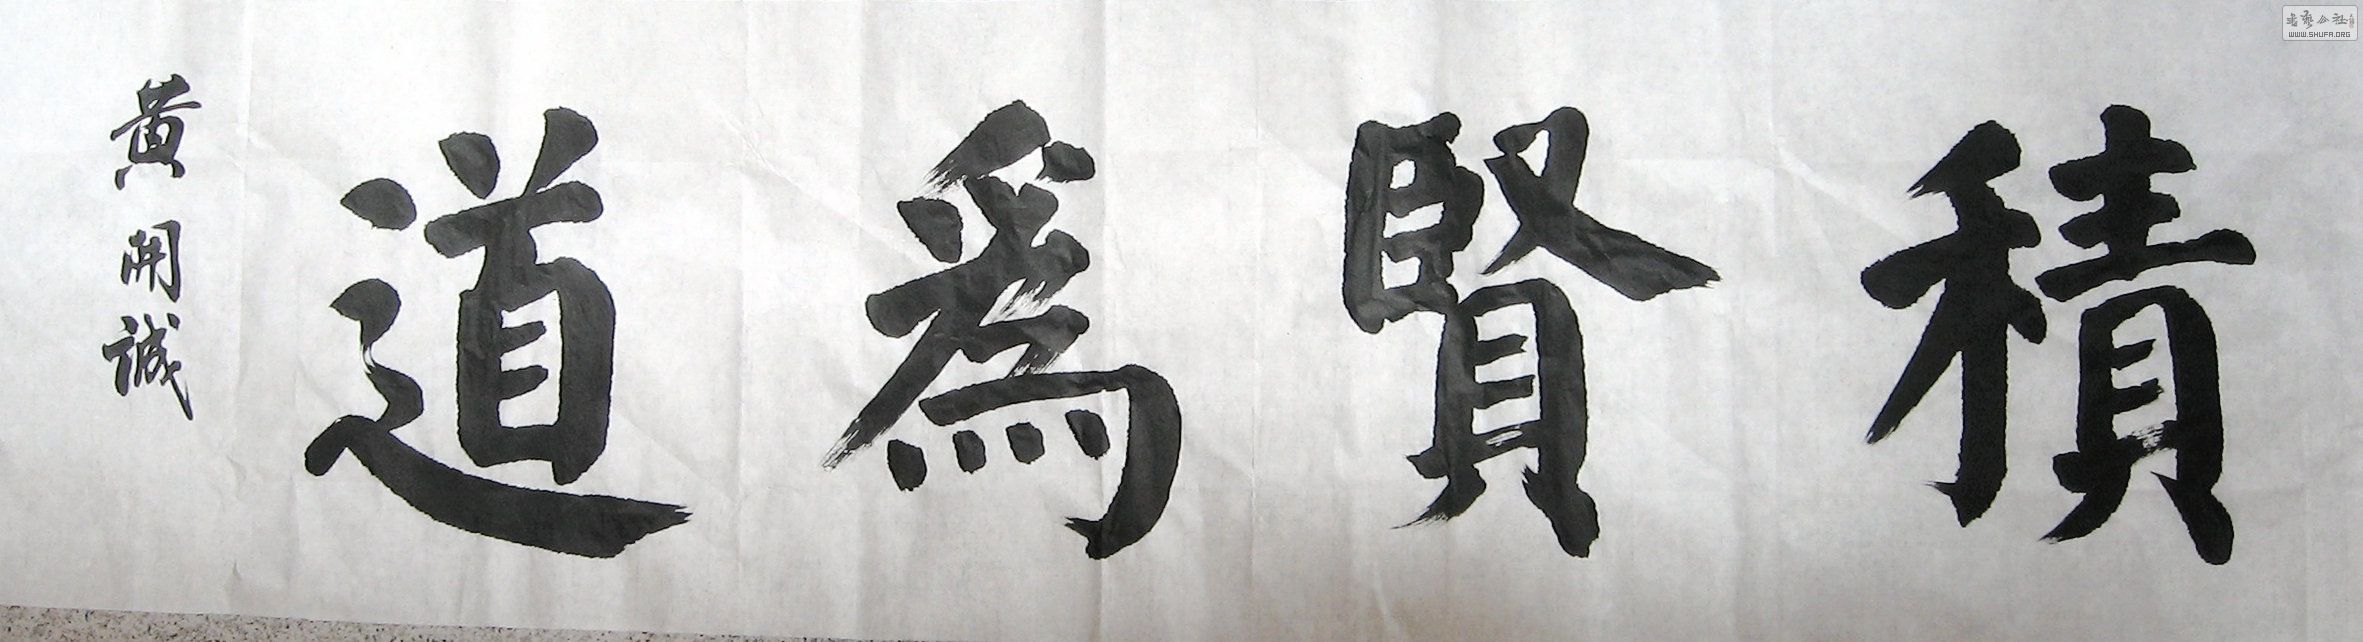 積賢爲道
黄開誠
书艺公社
WWW.SHUFA.ORG